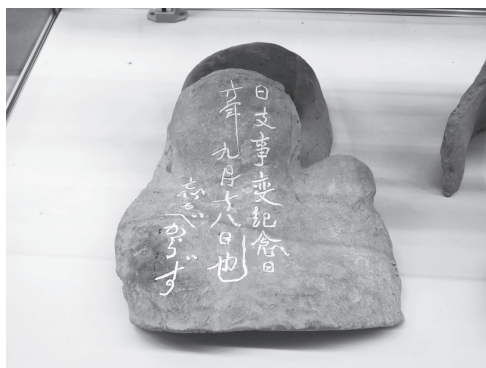 日支事変紀念日
六年九月十八日也
忘るべからず